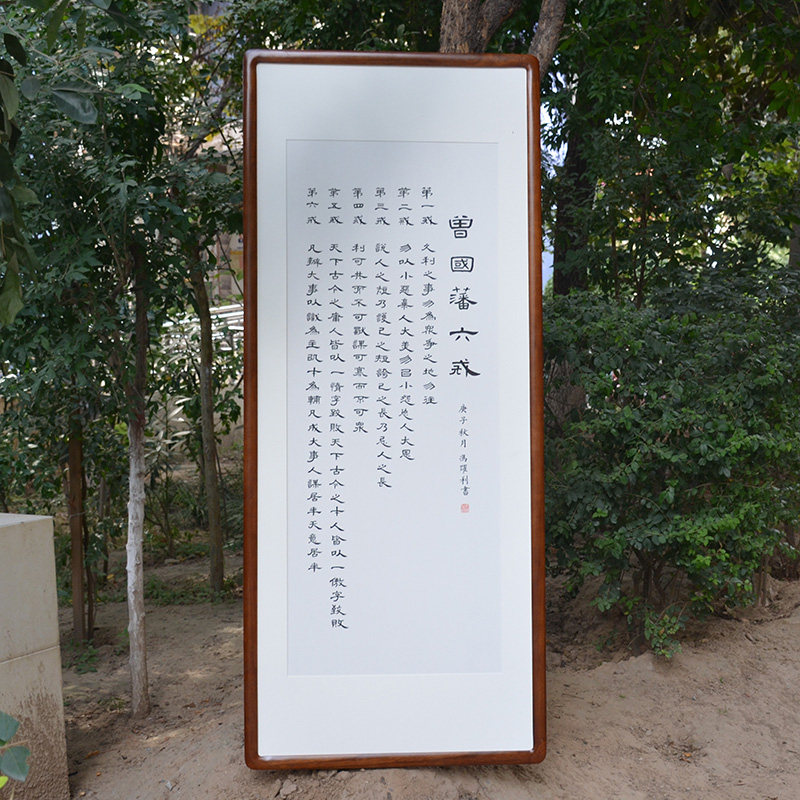 曾國藩六戒
庚子秋月 馮曜利書
第一戒 久利之事勿為衆爭之地勿往
第二戒 勿以小惡棄人大美勿以小怨忘人大恩
第三戒 說人之短乃護己之短誇己之長乃忌人之長
第四戒 利可共而不可獨謀可寡而不可衆
第五戒 天下古今之庸人皆以一惰字致敗天下古今之才人皆以一傲字致敗
第六戒 凡辦大事以識為主以才為輔凡成大事人謀居半天意居半